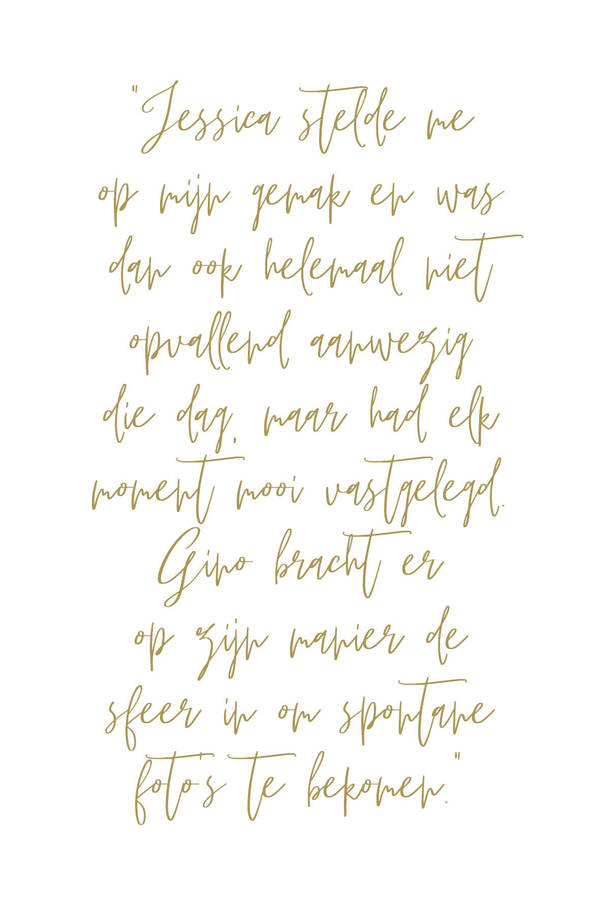 "Jessica stelde me
op mijn gemak en was
dan ook helemaal niet
opvallend aanwezig
die dag, maar had elk
moment mooi vastgelegd.
Gino bracht er
op zijn manier de
sfeer in om spontane
foto's te bekomen."